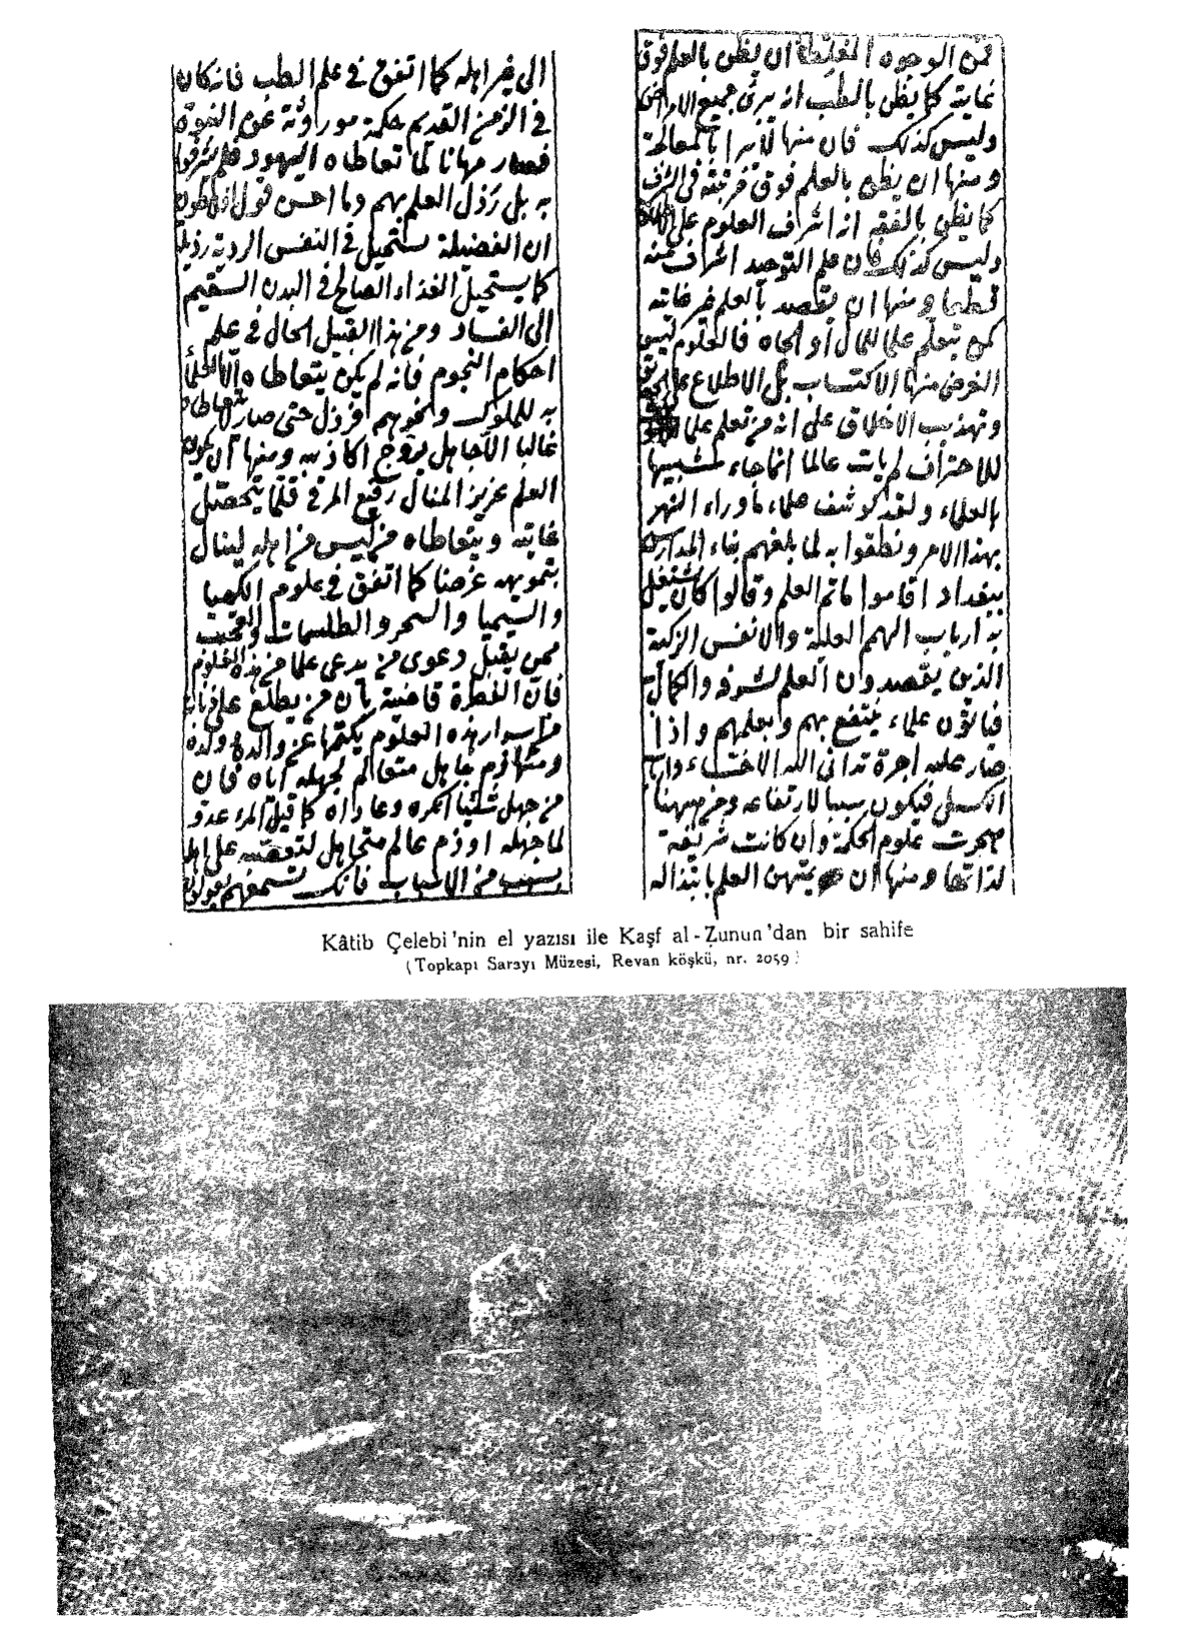 فمن الوجوه المغلطة ان يظن بالعلم فوق
غايته كما يظن بالطب انه يبرئ جميع الامراض
وليس كذلك فان منها لا يبرأ بالمعالجة
ومنها ان يظن بالعلم فوق مرتبته في الشرف
كما يظن بالفقه انه اشرف العلوم على
وليس كذلك فان علم التوحيد اشرف منه
قطعا ومنها ان يقصد بالعلم غير غايته
كمن يتعلم علما للمال أو الجاه فالعلوم ليس
الغرض منها الاكتساب بل الاطلاع على
وتهذيب الاخلاق على انه من تعلم علما
للاحتراف لم يأت عالما انما جاء شبيها
بالعلماء ولقد كوشف علماء ماوراء النهر
بهذا الامر ونطقوا به لما بلغهم بناء المدارس
ببغداد اقاموا مأتم العلم وقالوا كان يشتغل
به ارباب الهمم العلية والانفس الزكية
الذين يقصدون العلم لشرفه والكمال
فيأتون علماء ينتفع بهم وبعلمهم واذا
صار عليه اجرة تدانى اليه الاخساء
الكسل فيكون سببا لارتفاعه ومن ههنا
هجرت علوم الحكمة وان كانت شريفة
لذاتها ومنها ان يمتهن العلم بابتذاله
الى غير اهله كما اتفق في علم الطب فانه كان
في الزمن القديم حكمة موروثة عن النبوة
فصار مهانا لما تعاطاه اليهود فلم يشرفوا
به بل رذل العلم بهم وما احسن قول افلاطون
ان الفضيلة تستحيل في النفس الردية رذيلة
كما يستحيل الغذاء الصالح في البدن السقيم
الى الفساد ومن هذا القبيل الحال في علم
احكام النجوم فانه لم يكن يتعاطاه الا العلماء
به للملوك ونحوهم فرذل حتى صار يتعاطاه
غالبا الا جاهل يروج اكاذيبه ومنها ان يكون
العلم عزيز المنال رفيع المرقى قلما يتحصل
غايته ويتعاطاه من ليس من اهله لينال
بتمويهه غرضا كما اتفق في علوم الكيميا
والسيميا والسحر والطلسمات والعجب
ممن يقبل دعوى من يدعي علما من هذه العلوم
فان الفطرة قاضية بأن من يطلع على
من اسرار هذه العلوم يكتمها عن والده وولده
ومنها ذم جاهل متعالم لجهله اياه فان
من جهل شيئا انكره وعاداه كما قيل المرء عدو
لما جهله او ذم عالم متجاهل لتعصبه على اهله
بسبب من الاسباب فانك تسمعهم يقولون
Kâtib Çelebi'nin el yazısı ile Kaşf al-Ẓunun'dan bir sahife
(Topkapı Sarayı Müzesi, Revan köşkü, nr. 2059)